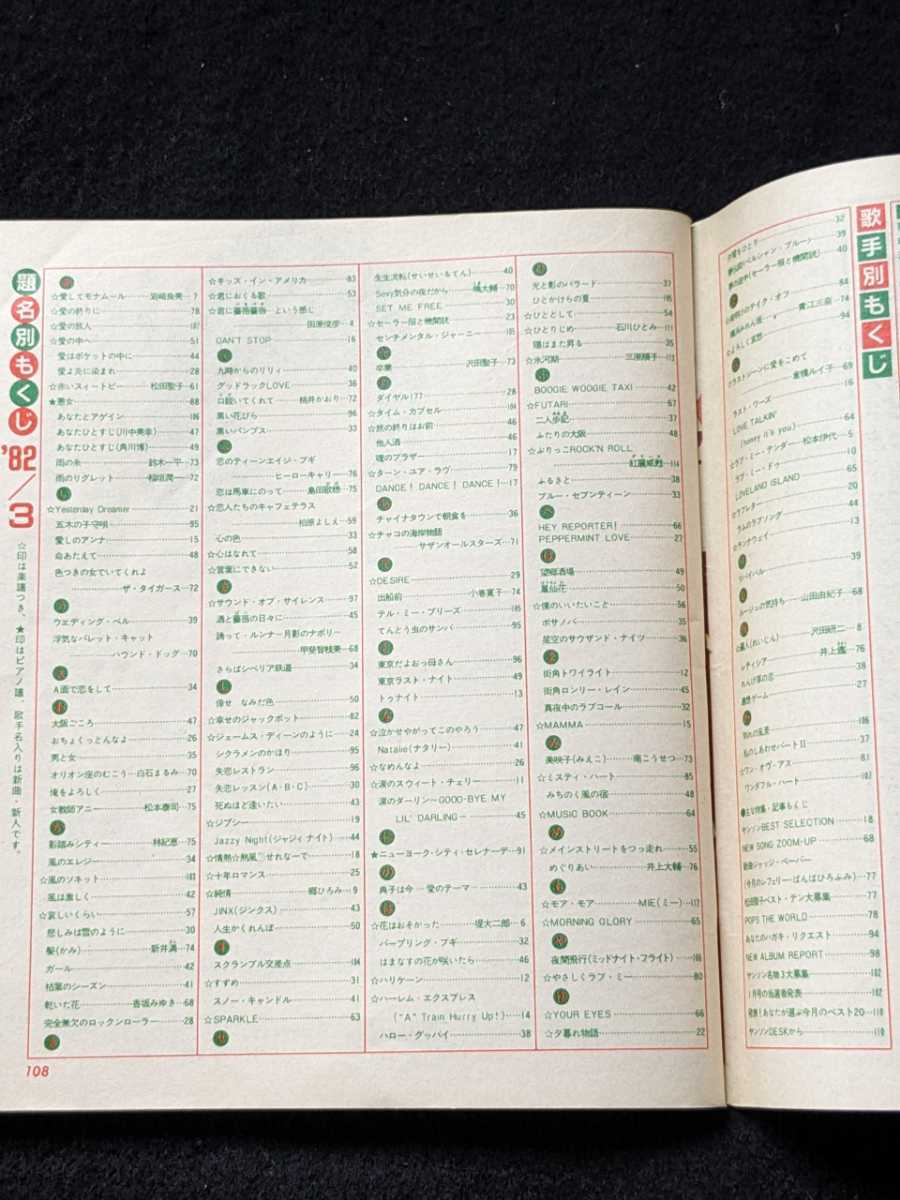 題名別もくじ
'82/3
☆印は楽譜つき、★印はピアノ譜、歌手名入りは新曲・新人です。
あ
☆愛してモナムール 岩崎良美 7
☆愛の終りに 78
☆愛の旅人 107
☆愛の中へ 51
愛はポケットの中に 44
愛よ炎に染まれ 28
☆赤いスイートピー 松田聖子 61
★悪女 88
あなたとアゲイン
あなたひとすじ(川中美幸) 47
あなたひとすじ(角川博) 49
雨の糸 鈴木一平 73
雨のリグレット 稲垣潤一 72
い
☆Yesterday Dreamer 21
五木の子守唄 95
愛しのアンナ 15
命あたえて 48
色つきの女でいてくれよ
ザ・タイガース 72
う
ウェディング・ベル 39
浮気なパレット・キャット
ハウンド・ドッグ 70
え
A面で恋をして 34
お
大阪ごころ 47
おちょくっとんなよ 26
男と女 35
オリオン座のむこう 白石まるみ 70
俺をよろしく 27
女教師アニー 松本泰司 75
か
影踏みシティー 林紀恵
風のエレジー 34
☆風のソネット
風は激しく 42
☆哀しいくらい 57
悲しみは雪のように 30
髪(かみ) 新井満 74
ガール 42
枯葉のシーズン 41
乾いた花 香坂みゆき 68
完全無欠のロックンローラー 28
き
☆キッズ・イン・アメリカ 83
☆君におくる歌 53
☆君に薔薇薔薇…という感じ
田原俊彦 4
CAN'T STOP 16
く
九時からのりりィ 40
グッドラックLOVE 36
口説いてくれて 桃井かおり 72
黒い花びら 96
黒いパンプス 33
こ
恋のティーンエイジ・ブギ
ヒーローキャリー 76
恋は馬車にのって 島田歌穂 75
☆恋人たちのキャフェテラス
柏原よしえ 59
心の色 33
☆心はなれて 58
☆言葉にできない 52
さ
☆サウンド・オブ・サイレンス 97
酒と薔薇の日々に 45
誘って・ルンナー月影のナポリー
甲斐智枝美 68
さらばシベリア鉄道 34
し
倖せ なみだ色 50
☆幸せのジャックポット 82
☆ジェームス・ディーンのように 24
シクラメンのかほり 95
失恋レストラン 96
失恋レッスン(A・B・C) 30
死ぬほど逢いたい 43
☆ジプシー 19
Jazzy Night(ジャジィ ナイト) 44
☆情熱☆熱風☽せれなーで 18
☆十年ロマンス 25
☆純情 郷ひろみ 9
JINX(ジンクス) 43
人生かくれんぼ 50
す
スクランブル交差点
☆すずめ 31
スノー・キャンドル 41
☆SPARKLE 63
せ
生生流転(せいせいるてん) 40
Sexy気分の夜だから 嶋大輔 70
SET ME FREE 30
☆セーラー服と機関銃 23
センチメンタル・ジャーニー
そ
卒業 沢田聖子 73
た
ダイヤル177 28
☆タイム・カプセル
☆旅の終りはお前 46
他人酒 46
魂のブラザー 17
☆ターン・ユア・ラヴ 79
DANCE! DANCE! DANCE! 17
ち
チャイナタウンで朝食を 36
☆チャコの海岸物語
サザンオールスターズ 71
て
☆DESIRE 29
出船前 小春寛子 74
テル・ミー・プリーズ
てんとう虫のサンバ 95
と
東京だよおっ母さん 96
東京ラスト・ナイト 49
トゥナイト 13
な
☆泣かせやがってこのやろう 47
Natalie(ナタリー) 41
☆なめんなよ 26
☆涙のスウィート・チェリー 11
涙のダーリン〜GOOD-BYE MY
LIL' DARLING〜 45
に
★ニューヨーク・シティ・セレナーデ 91
の
典子は今―愛のテーマ― 43
は
☆花はおそかった 堤大二郎 6
バーブリング・ブギ 32
はまなすの花が咲いたら 46
☆ハリケーン 12
☆ハーレム・エクスプレス
("A" Train Hurry Up!) 14
ハロー・グッバイ 38
ひ
光と影のバラード 37
ひとかけらの夏
☆ひととして 54
☆ひとりじめ 石川ひとみ 111
陽はまた昇る 35
☆氷河期 三原順子 112
ふ
BOOGIE WOOGIE TAXI 42
☆FUTARI 67
二人歩記 37
ふたりの大阪 48
☆ぶりっこROCK'N ROLL
紅麗威甦 114
ふるさと 38
ブルー・セブンティーン 33
へ
HEY REPORTER! 66
PEPPERMINT LOVE 27
ほ
望郷酒場 49
鳳仙花 50
☆僕のいいたいこと 56
ボサノバ 35
星空のサウザンド・ナイツ 36
ま
街角トワイライト 12
街角ロンリー・レイン 45
真夜中のラブコール 32
☆MAMMA 15
み
美映子(みえこ) 南こうせつ 73
☆ミスティ・ハート 85
みちのく風の宿 48
☆MUSIC BOOK 64
め
☆メインストリートをつっ走れ 55
めぐりあい 井上大輔 76
も
☆モア・モア MIE(ミー) 117
☆MORNING GLORY 65
や
夜間飛行(ミッドナイト・フライト)
☆やさしくラブ・ミー 80
ゆ
☆YOUR EYES 66
☆夕暮れ物語 22
108
32
39
夢の途中(セーラー服と機関銃) 40
84
74
☆よろしく哀愁 94
高橋ルイ子 69
ラスト・ワーズ 16
LOVE TALKIN'
(honey it's you) 64
松本伊代 5
ラブ・ミー・ドゥ
LOVELAND ISLAND 65
20
ラムのラブソング 44
13
リバイバル 39
ルージュの気持ち 山田由紀子 68
☆麗人(れいじん) 沢田研二 8
レティシア 井上鑑 76
れんげ草の恋 38
私のしあわせパートⅡ 37
☆ワン・オヴ・アス 81
ワンダフル・ハート
●主な特集・記事もくじ
ヤンソンBEST SELECTION 18
NEW SONG ZOOM-UP 68
新曲ジャッジ・ペーパー
(今月のレフェリー・ばんばひろふみ) 77
松田聖子ベスト・テン大募集 77
POPS THE WORLD 78
あなたのハガキ・リクエスト 94
NEW ALBUM REPORT 98
ヤンソン名物3大募集 102
1月号の当選者発表 102
発表!あなたが選ぶ今月のベスト20 110
ヤンソンDESKから 110
歌手別もくじ